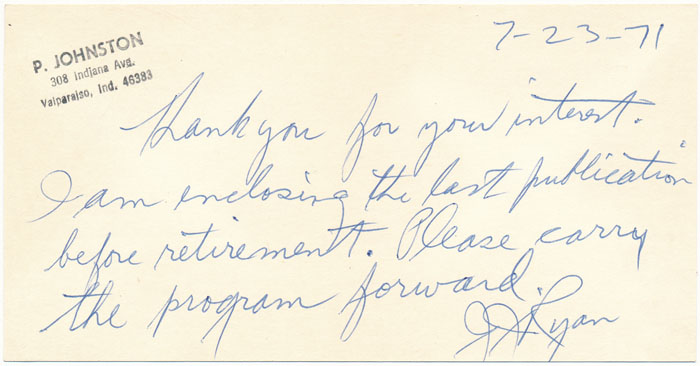 P. JOHNSTON
308 Indiana Ave.
Valparaiso, Ind. 46383
7-23-71
Thank you for your interest.
I am enclosing the last publication
before retirement. Please carry
the program forward.
JJ Ryan